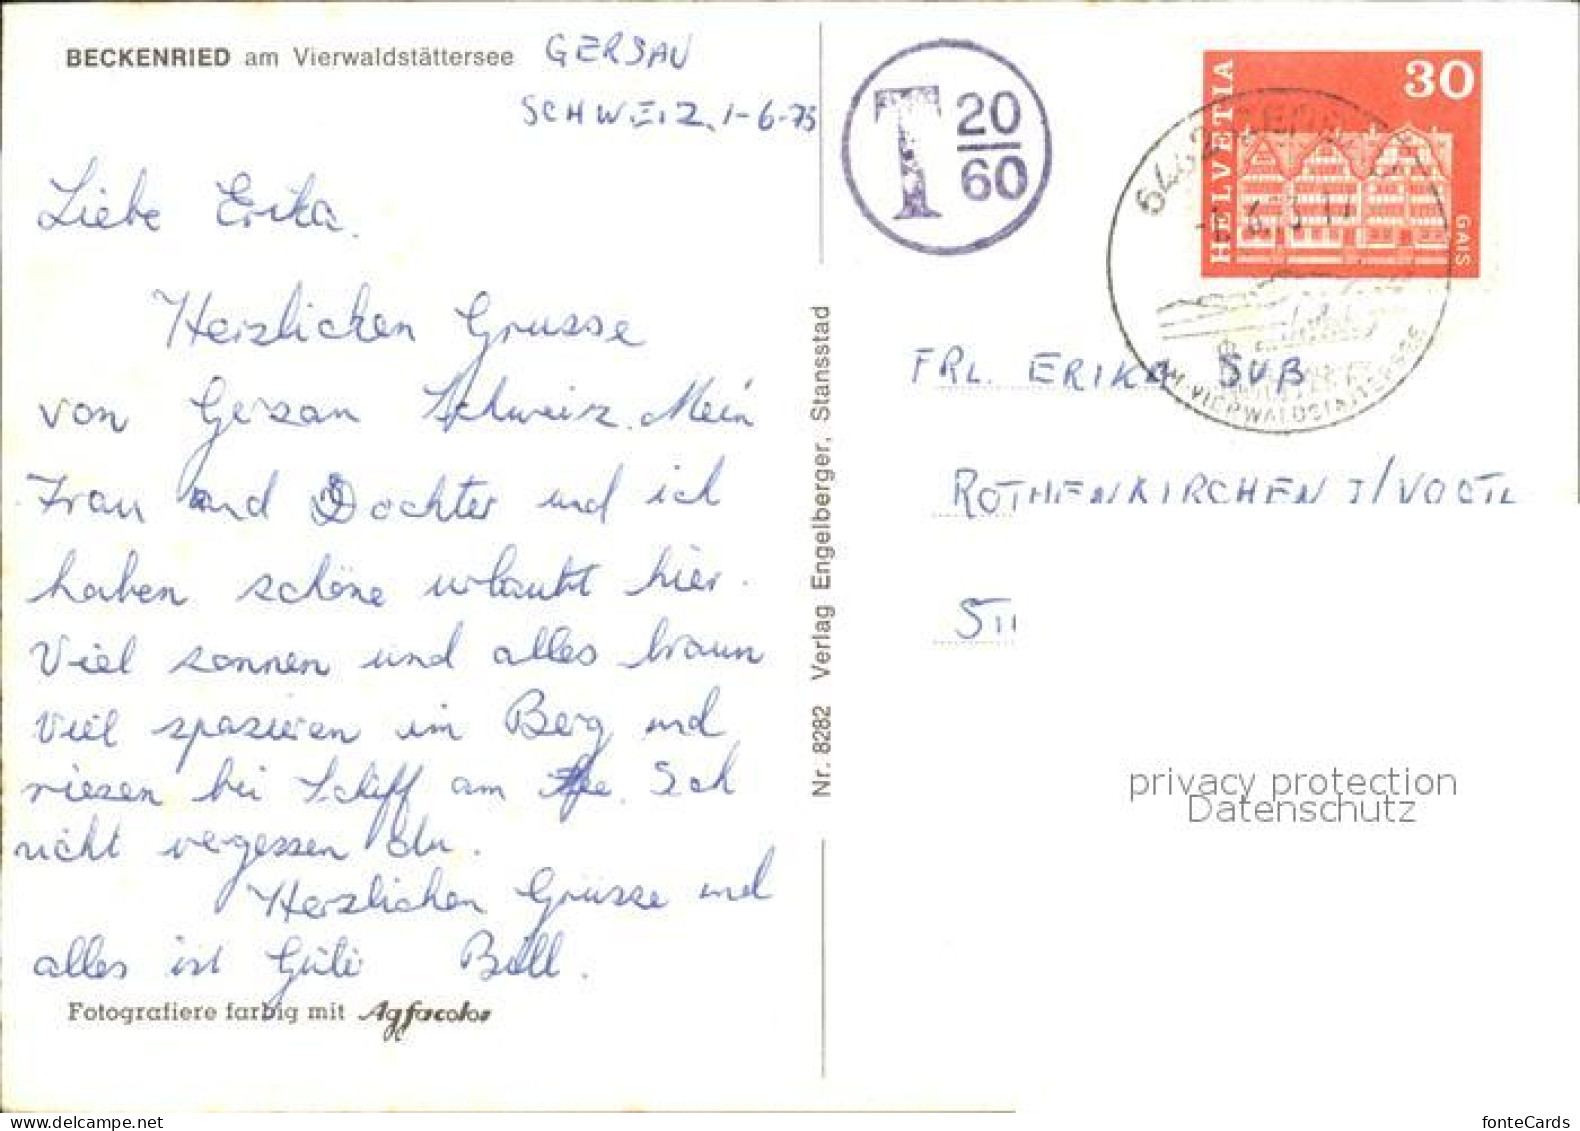 BECKENRIED am Vierwaldstättersee GERSAU
SCHWEIZ, 1-6-75
Liebe Erika.
Herzlichen Grusse
von Gersau Schweiz. Mein
Frau und Dochter und ich
haben schöne urlaubt hier.
Viel sonnen und alles braun
Viel spazieren im Berg und
riesen bei Schiff am See. Ich
nicht vergessen du.
Herzlichen Grüsse und
alles ist Güte Bill.
Fotografiere farbig mit Agfacolor
Nr. 8282 Verlag Engelberger, Stansstad
T 20
60
HELVETIA
30
GAIS
6442 GERSAU
AM VIERWALDSTÄTTERSEE
FRL. ERIKA SUß
ROTHENKIRCHEN I/VOGTL
privacy protection
Datenschutz
fonteCards